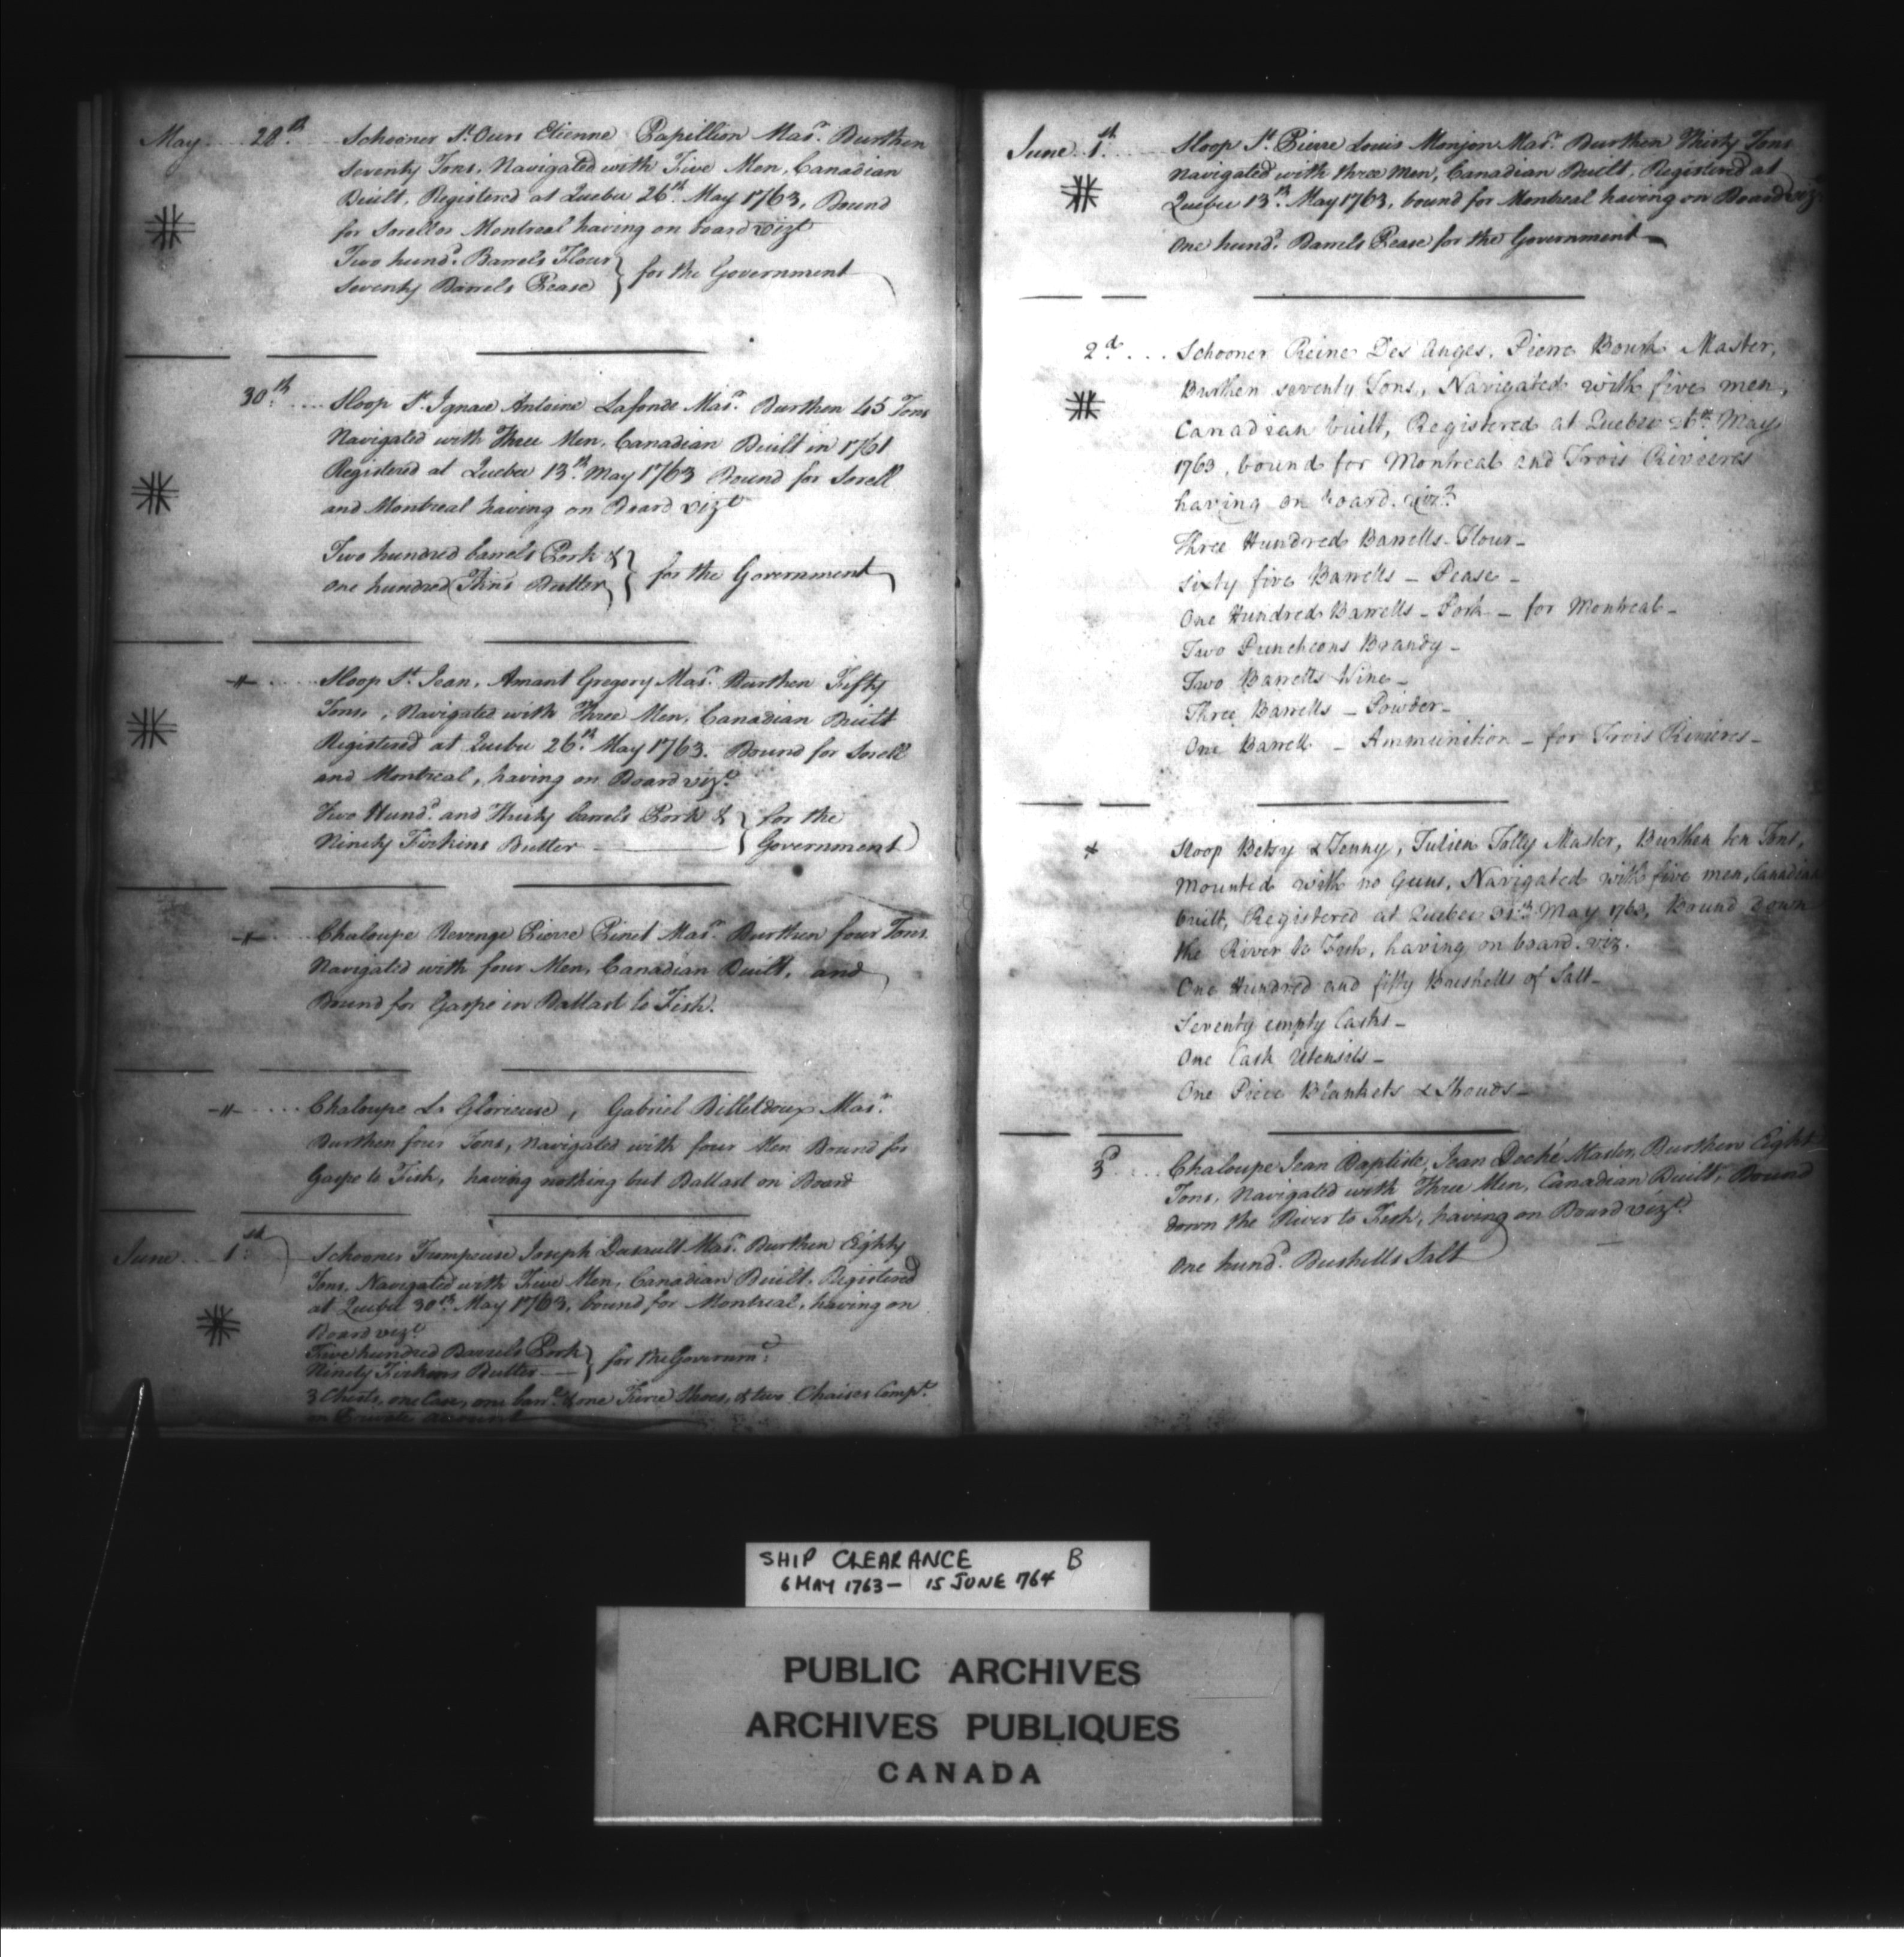 May 28th. Schooner St. Ours Etienne Papillion Masr. Burthen
Seventy Tons, Navigated with Five Men, Canadian
Built, Registered at Quebec 26th May 1763, Bound
for Sorell or Montreal having on board vizt
Two hund.d Barrels Flour } for the Government
Seventy Barrels Pease
30th. Sloop St. Ignace Antoine Lafonde Masr. Burthen 45 Tons
Navigated with Three Men, Canadian Built in 1761
Registered at Quebec 13th. May 1763 Bound for Sorell
and Montreal having on Board vizt
Two hundred barrels Pork & } for the Government
One hundred Firkins Butter
-"- Sloop St. Jean, Amant Gregory Masr. Burthen Fifty
Tons, Navigated with Three Men, Canadian Built
Registered at Quebec 26th. May 1763. Bound for Sorell
and Montreal, having on Board vizt.
Two Hund.d and Thirty barrels Pork & } for the
Ninety Firkins Butter Government
-"- Chaloupe Revenge Pierre Pinet Masr. Burthen four Tons
Navigated with four Men, Canadian Built, and
Bound for Gaspe in Ballast to Fish.
-"- Chaloupe La Glorieuse, Gabriel Billetdoux Masr.
Burthen four Tons, Navigated with four Men Bound for
Gaspe to Fish, having nothing but Ballast on Board
June 1st Schooner Trompeuse Joseph Dusault Masr. Burthen Eighty
Tons, Navigated with Five Men, Canadian Built, Registered
at Quebec 30th May 1763, bound for Montreal, having on
Board vizt
Five hundred Barrels Pork } for the Governmt.
Ninety Firkins Butter
3 Chests, one Case, one barrl. & one Tierce Shoes, & two Chaises Compt.
on Private account
June 1st. Sloop St. Pierre Louis Monjon Masr. Burthen Thirty Tons
Navigated with three Men, Canadian Built, Registered at
Quebec 13th May 1763, bound for Montreal having on Board vizt
One hund.d Barrels Pease for the Government
2d. Schooner Reine Des Anges, Pierre Bourk Master,
Burthen seventy Tons, Navigated with five men,
Canadian built, Registered at Quebec 26th May
1763, bound for Montreal and Trois Rivieres
having on board. vizt.
Three Hundred Barrells - Flour -
Sixty five Barrells - Pease -
One Hundred Barrells - Pork - for Montreal -
Two Puncheons Brandy -
Two Barrells Wine -
Three Barrells - Powder -
One Barrell - Ammunition - for Trois Rivieres -
Sloop Betsy & Jenny, Julien Jolly Master, Burthen ten Tons,
Mounted with no Guns, Navigated with five men, Canadian
built, Registered at Quebec 31th May 1763, Bound down
the River to Fish, having on board. viz.
One Hundred and fifty Bushells of Salt -
Seventy empty Casks -
One Cask Utensils -
One Piece Blankets & Strouds -
3d. Chaloupe Jean Baptiste, Jean Doché Master, Burthen Eight
Tons, Navigated with Three Men, Canadian Built, Bound
down the River to Fish, having on Board vizt.
One hund.d Bushells Salt
SHIP CLEARANCE B
6 MAY 1763 - 15 JUNE 764
PUBLIC ARCHIVES
ARCHIVES PUBLIQUES
CANADA